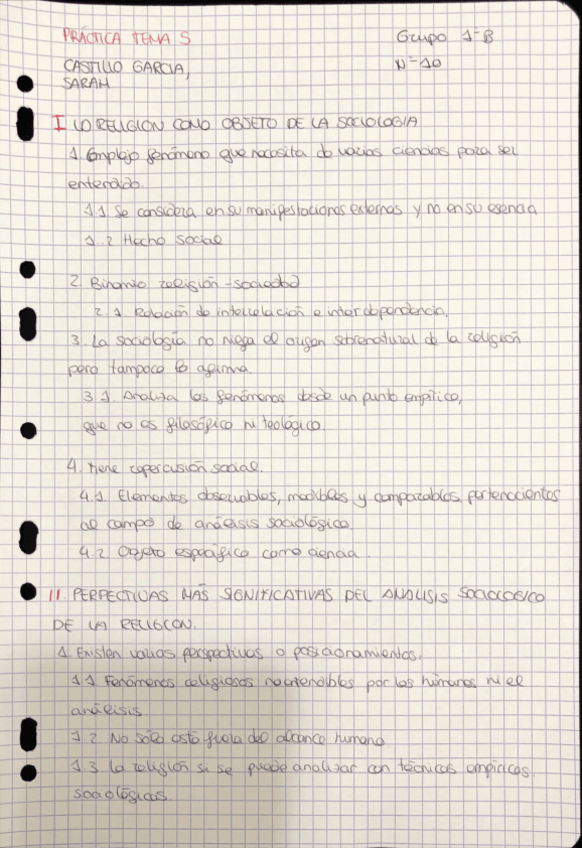 PRÁCTICA TEMA 5
Grupo 1-B
CASTILLO GARCIA,
Nº10
SARAH
I LA RELIGION COMO OBJETO DE LA SOCIOLOGIA
1. Complejo fenómeno que necesita de varias ciencias para ser
entendido.
1.1 Se considera en su manifestaciones externas y no en su esencia
1.2 Hecho social
2. Binomio religión-sociedad
2.1. Relación de intercelación e interdependencia.
3. La sociología no niega el origen sobrenatural de la religión
pero tampoco lo afirma.
3.1. Analiza los fenómenos desde un punto empírico,
que no es filosófico ni teológico.
4. tiene repercusión social.
4.1. Elementos observables, medibles y comparables, pertenecientes
al campo de análisis sociológico.
4.2 Objeto específico como ciencia.
II. PERPECTIVAS MÁS SIGNIFICATIVAS DEL ANALISIS SOCIOLOGICO
DE LA RELIGION.
1. Existen varias perspectivas o posicionamientos.
1.1 Fenómenos religiosos no entendibles por los humanos ni el
análisis
1.2. No sólo está fuera del alcance humano
1.3. La religión si se puede analizar con técnicas empíricas.
sociológicas.